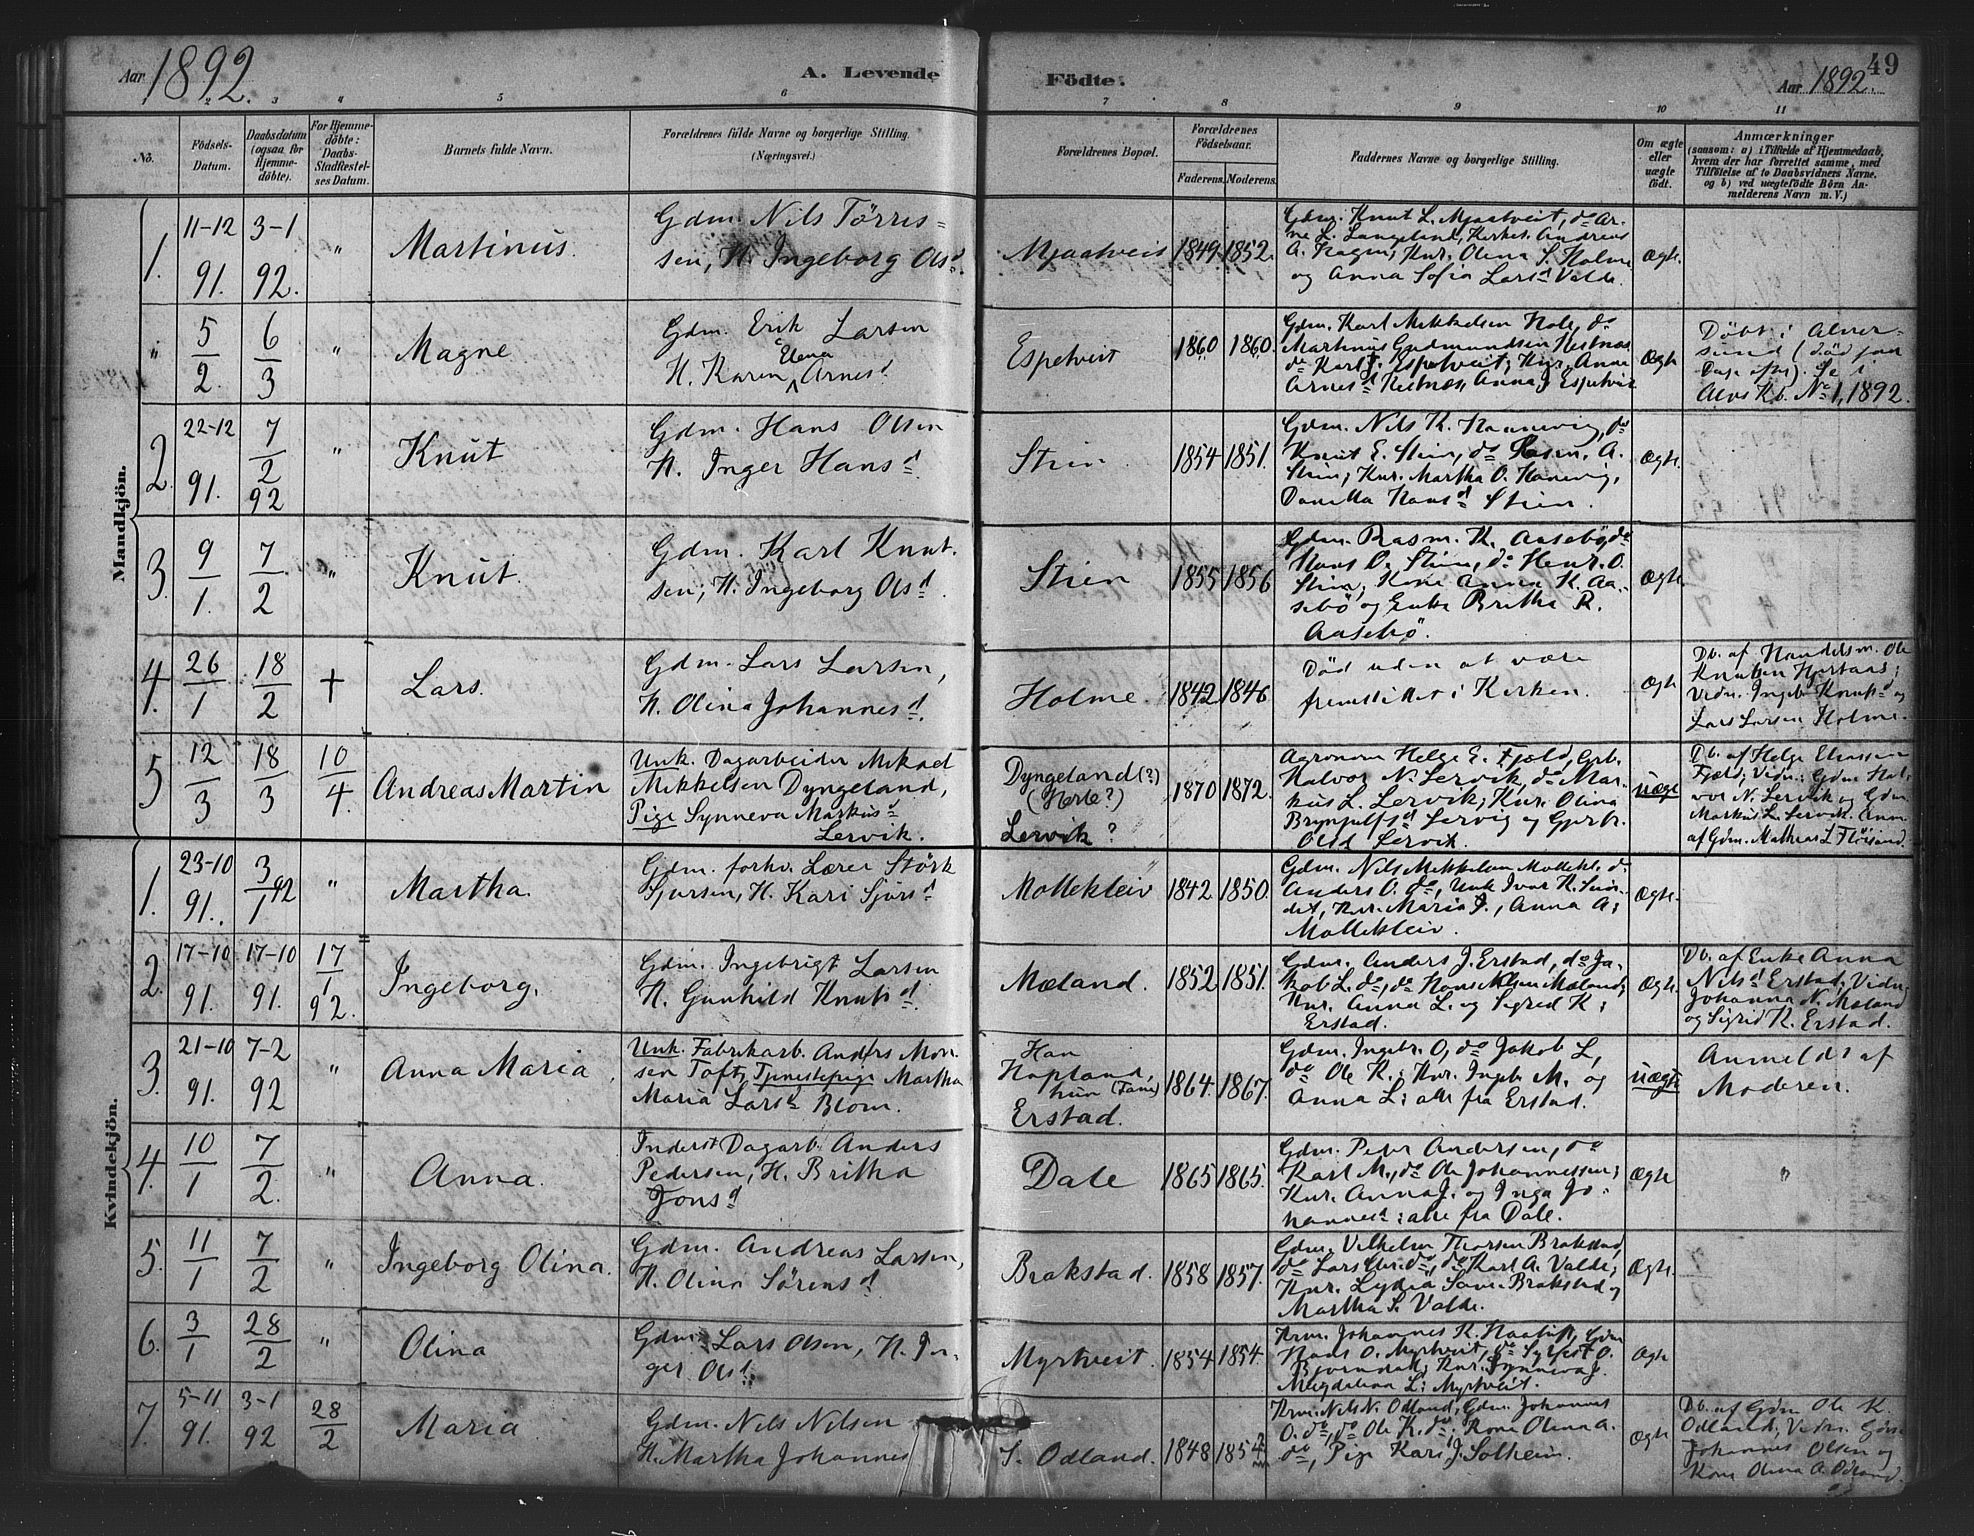 Aar 1892. A. Levende Födte. Aar 1892. 49
1 2 3 4 5 6 7 8 9 10 11
No. Födsels-Datum. Daabsdatum (ogsaa for Hjemmedöbte). For Hjemmedöbte: Daabs-Stadfæstelses Datum. Barnets fulde Navn. Forældrenes fulde Navne og borgerlige Stilling. (Næringsvei.) Forældrenes Bopæl. Forældrenes Födselsaar. Faderens. Moderens. Faddernes Navne og borgerlige Stilling. Om ægte eller uægte födt. Anmærkninger
(saasom: a) i Tilfælde af Hjemmedaab,
hvem der har forrettet samme, med
Tilföielse af to Daabsvidners Navne,
og b) ved uægtefödte Börn Anmelderens Navn m. V.)
Mandkjön.
1. 11-12 91. 3-1 92. " Martinus.
Gdm. Nils Tørris=
sen, H. Ingeborg Olsd.
Mjaatveit 1849 1852.
Gdm. Knut L. Mjaatveit, do Ar-
ne L. Langeland, Kirkes. Andreas
A. Hagen; Kur. Olina S. Holme
og Anna Sofia Larsd Valde.
Ægte.
" 5/2. 6/3 " Magne.
Gdm. Erik Larsen
H. Karen Elena Arnesd.
Espetveit 1860 1860.
Gdm. Karl Mikkelsen Hole, do
Martinus Gudmundsen Hestnæs
do Karl J. Espetveit; Kur. Anne
Arnesd Hestnæs, Anna J Espetveit
Ægte
Døbt i Alver-
sund (død faa
Dage efter). Se i
Alvs Kb. No 1, 1892.
2. 22-12 91. 7/2 92 " Knut
Gdm. Hans Olsen
H. Inger Hansd
Stien. 1854 1851.
Gdm. Nils K. Hannevig, do
Knut E. Stien, do Rasm. A.
Stien; Kur. Martha O. Hanevig,
Hansd Stien.
Ægte.
3. 9/1. 7/2 " Knut.
Gdm. Karl Knut.
sen, H. Ingeborg Olsd.
Stien 1855 1856
Gdm. Rasm. K. Aasebö, do
Hans O. Stien, do Henr. O.
Stien; Kone Anna K. Aa-
sebö og Enke Britha R.
Aasebö.
Ægte.
4. 26/1 18/2 + Lars.
Gdm. Lars Larsen,
H. Olina Johannesd.
Holme. 1842 1846
Død uden at være
fremstillet i Kirken.
Ægte
Db. af Handelsm. Ole
Knutsen Hjertaas;
Vidn. Ingeb. Knutsd og
Lars Larsen Holme.
5 12/3 18/3 10/4 Andreas Martin
Unk. Dagarbeider Mikael
Mikkelsen Dyngeland,
Pige Synneva Markusd
Lervik.
Dyngeland (?)
(Herlø?)
Lervik?
1870 1872.
Agronom Helge E. Fjeld, Grb.
Halvor N. Lervik, do Mar-
kus L. Lervik; Kur. Olina
Brynjulfsd Lervig og
Olsd Lervik.
uægte
Db. af Helge Eliassen
Fjeld; Vidn.: Gdm Hal-
vor N. Lervik og Gdm.
Markus L. Lervik. Anm
af Gdm. Mathias L.
Kvindekjön.
1. 23-10 91. 3/1 92 " Martha.
Gdm. forhv. Lærer Størk
Sjursen, H. Kari Sjursd
Mollekleiv 1842 1850.
Gdm. Nils Mikkelsen Mollekl. do
Anders O. do, Unk Ivar K.
Kur. Maria J., Anna A;
Mollekleiv.
Ægte.
2. 17-10 91. 17-10 91. 17/1 92. Ingeborg.
Gdm. Ingebrigt Larsen
H. Gunhild Knutsd.
Mæland. 1852 1851.
Gdm. Anders J. Erstad, do Ja-
kob L. do, do Hans Nilsen Mæland;
Kur. Anna L. og Sigrid K;
Erstad.
Ægte.
Db. af Enke Anna
Nilsd Erstad; Vidn.
Johanna N. Mæland
og Sigrid K. Erstad.
3. 21-10 91. 7-2 92 " Anna Maria.
Unk. Fabrikarb. Anders Mon
sen Toft, Tjenestepige Martha
Maria Larsd Blom.
Han
Hopland,
hun (Fane)
Erstad.
1864. 1867.
Gdm. Ingebr. O, do Jakob L,
do Ole K.; Kur. Ingeb. M. og
Anna L; alle fra Erstad.
uægte
Anmeldt af
Moderen.
4. 10/1 7/2. " Anna.
Inderst Dagarb. Anders
Pedersen, H. Britha
Jonsd
Dale 1865 1865.
Gdm. Peder Andersen, do
Karl M., do Ole Johannessen;
Kur. Anna J. og Inga Jo-
hannesd; alle fra Dale.
Ægte "
5. 11/1 7/2 " Ingeborg Olina.
Gdm. Andreas Larsen,
H. Olina Sørensd
Brakstad. 1858 1857.
Gdm. Vilhelm Thorsen Brakstad,
do Lars Chr. do, do Karl A. Valde;
Kur. Lydia Brakstad og
Martha S. Valde.
Ægte.
6. 3/1 28/2 " Olina
Gdm. Lars Olsen, H. In-
ger Olsd.
Myrtveit. 1854 1854.
Krm. Johannes K. Gdm
Hans O. Myrtveit, do Sylfest O.
Kur. Synneva J.
Magdalena L; Myrtveit.
Ægte
7. 5-11 91. 3-1 92 28/2 Maria
Gdm. Nils Nilsen
H. Martha Johannes
S. Odland. 1848 1854
Krm. Nils N. Odland, Gdm. Johannes
O. do, do Ole K. do; Kone Olina A.
do, Pige Kari J. Solheim.
Ægte
Db. af Gdm Ole K.
Odland; Vidn. Gdm
Johannes Olsen og
Kone Olina A. Odland.